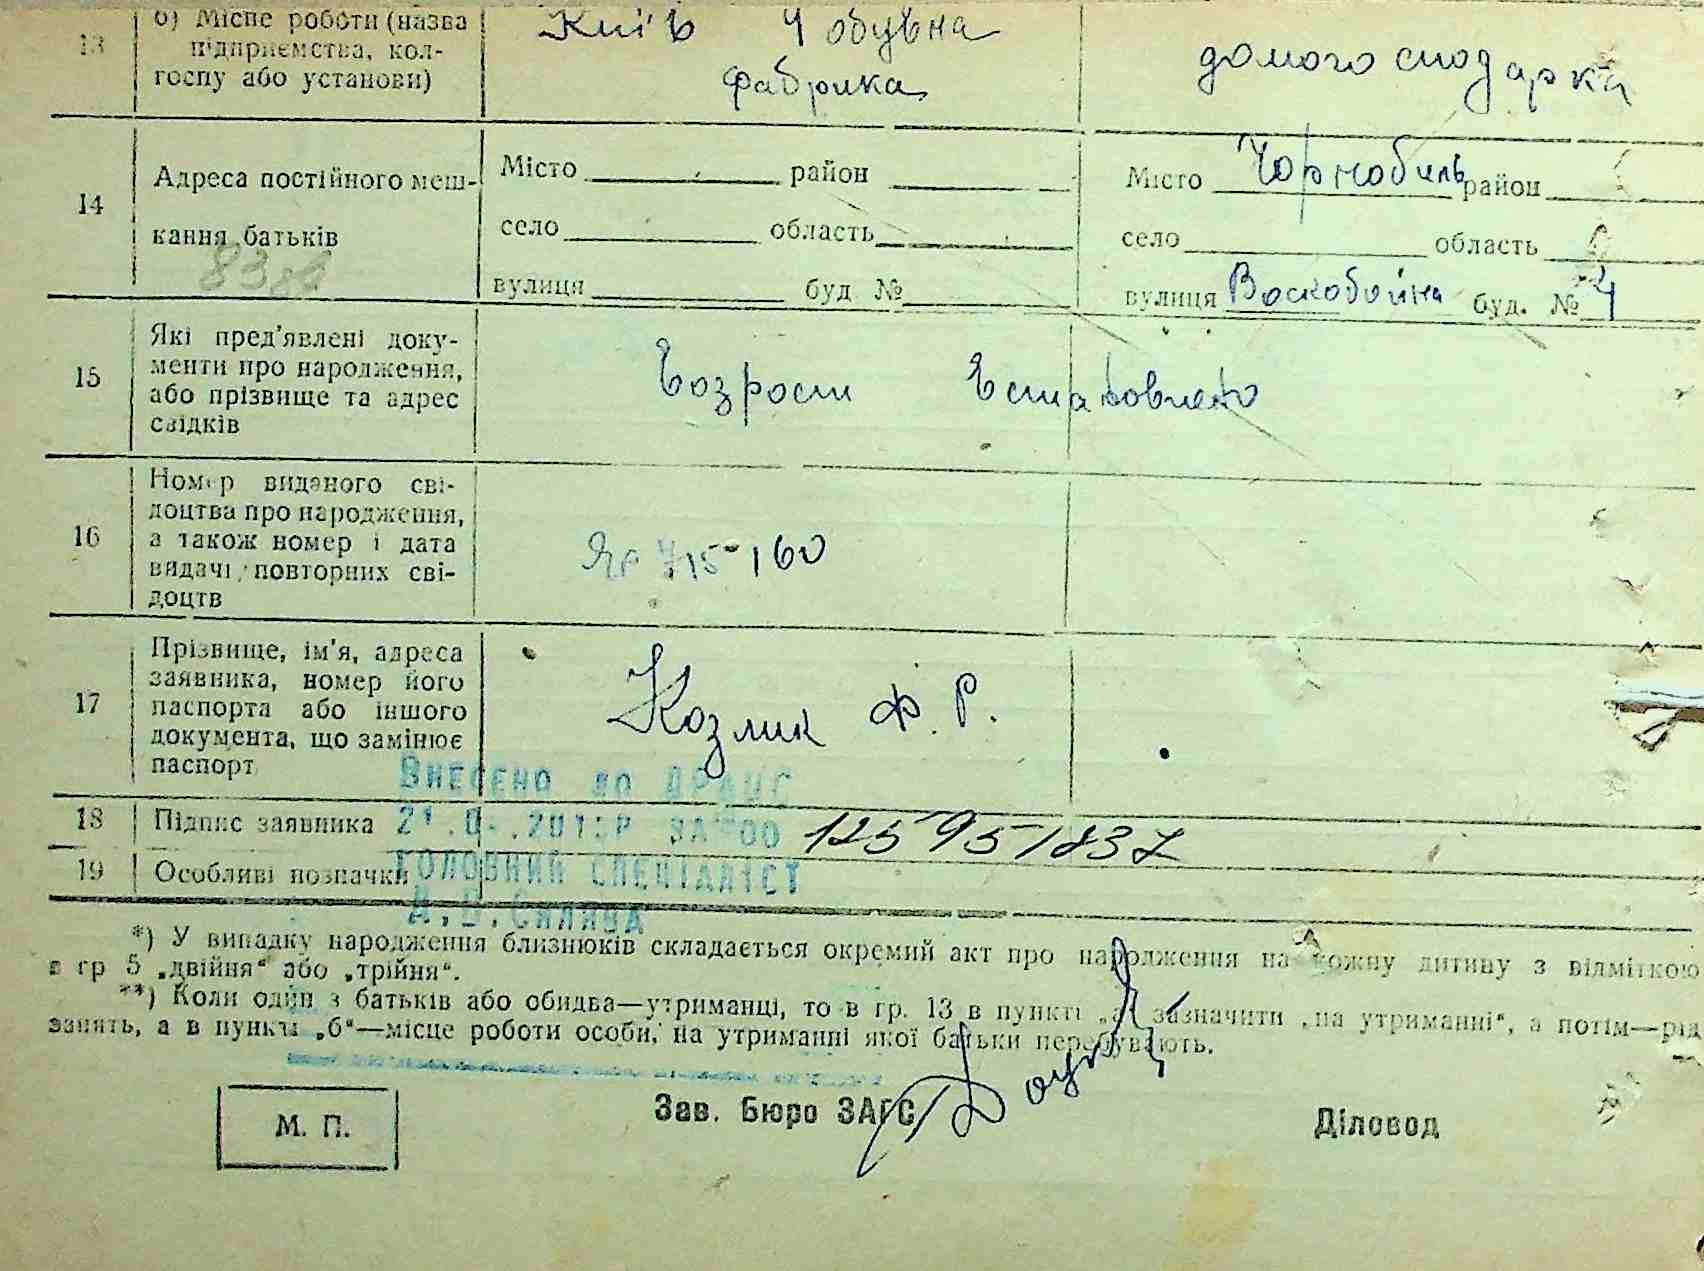 13 б) Місце роботи (назва підприємства, колгоспу або установи) Київ 4 обувна фабрика домогосподарка
14 Адреса постійного мешкання батьків
Місто район Місто Чорнобиль район
село область село область
вулиця буд № вулиця Воскобойна буд. № 4
15 Які пред'явлені документи про народження, або прізвище та адрес свідків
16 Номер виданого свідоцтва про народження, а також номер і дата видачі повторних свідоцтв 715160
17 Прізвище, ім'я, адреса заявника, номер його паспорта або іншого документа, що замінює паспорт Козлик Ф. Р.
Внесено до ДРАЦС
18 Підпис заявника за №00 125951837
19 Особливі позначки
Головний спеціаліст
*) У випадку народження близнюків складається окремий акт про народження на кожну дитину з відміткою
в гр 5 „двійня“ або „трійня“.
**) Коли один з батьків або обидва—утриманці, то в гр. 13 в пункті „а“ зазначити „на утриманні“, а потім—рід
занять, а в пункті „б“—місце роботи особи, на утриманні якої батьки перебувають.
М. П. Зав. Бюро ЗАГС Діловод